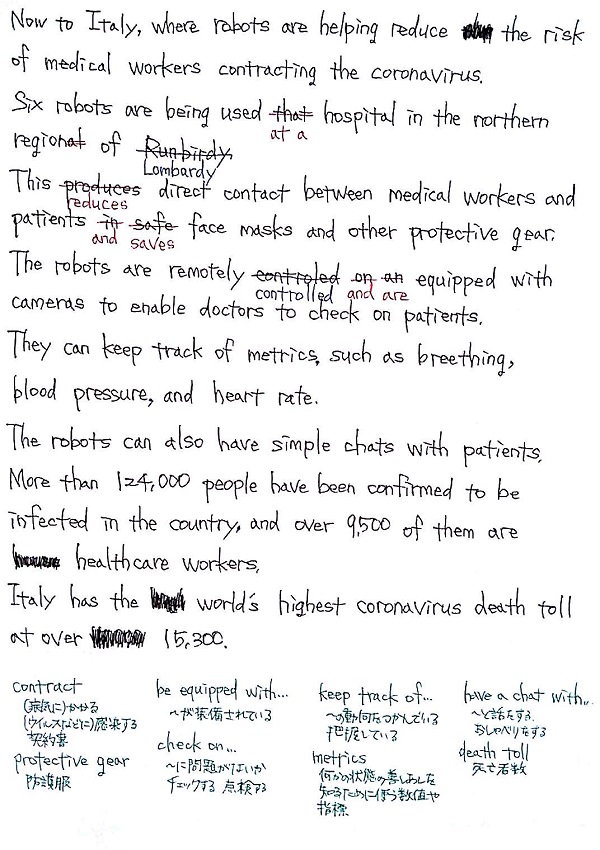 Now to Italy, where robots are helping reduce the risk
of medical workers contracting the coronavirus.
Six robots are being used that hospital in the northern
at a
regional of Runbirdy,
Lombardy
This produces direct contact between medical workers and
reduces
patients in safe face masks and other protective gear.
and saves
The robots are remotely controled on an equipped with
controlled and are
cameras to enable doctors to check on patients.
They can keep track of metrics, such as breething,
blood pressure, and heart rate.
The robots can also have simple chats with patients.
More than 124,000 people have been confirmed to be
infected in the country, and over 9,500 of them are
healthcare workers.
Italy has the world's highest coronavirus death toll
at over 15,300.
contract
(病気に)かかる
(ウイルスなどに)感染する
契約書
protective gear
防護服
be equipped with...
〜が装備されている
check on...
〜に問題がないか
チェックする 点検する
keep track of...
〜の動向をつかんでいる
把握している
metrics
何かの状態の善しあしを
知るために使う数値や
指標
have a chat with...
〜と話をする.
おしゃべりをする
death toll
死亡者数